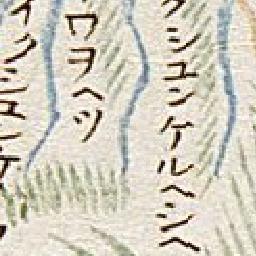 クシュンケルヘシヘ
ワヲヘツ
イクシュンケ